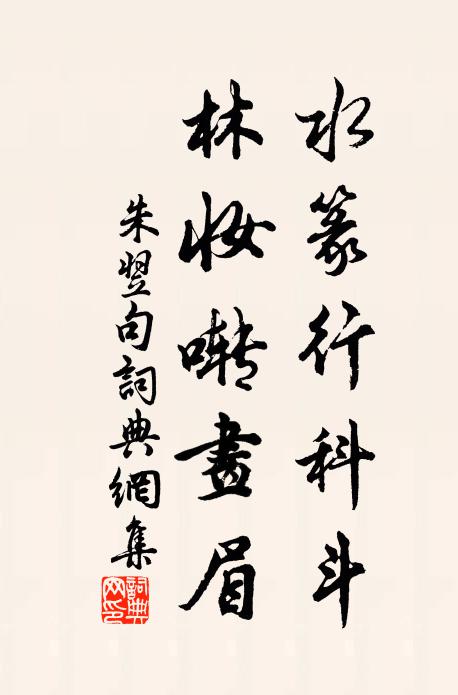 水篆行科斗
林妝囀畫眉
朱翌句詞典網集
詞典网印